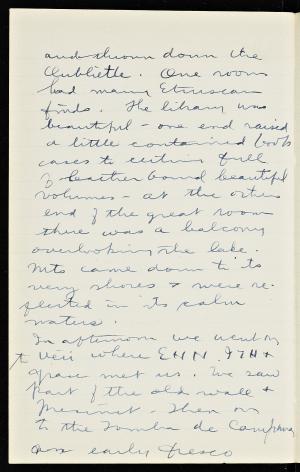 and thrown down the
Oubliette. One room
had many Etruscan
finds. The library was
beautiful - one end raised
a little contained book
cases to ceiling full
of leather bound beautiful
volumes - at the other
end of the great room
there was a balcony
overlooking the lake.
Mts came down to its
very shores & were re-
flected in its calm
waters.
In afternoon we went on
to Veii where EHN
Grace met us. We saw
part of the old wall &
then on
to the Tomba de Campana
an early fresco